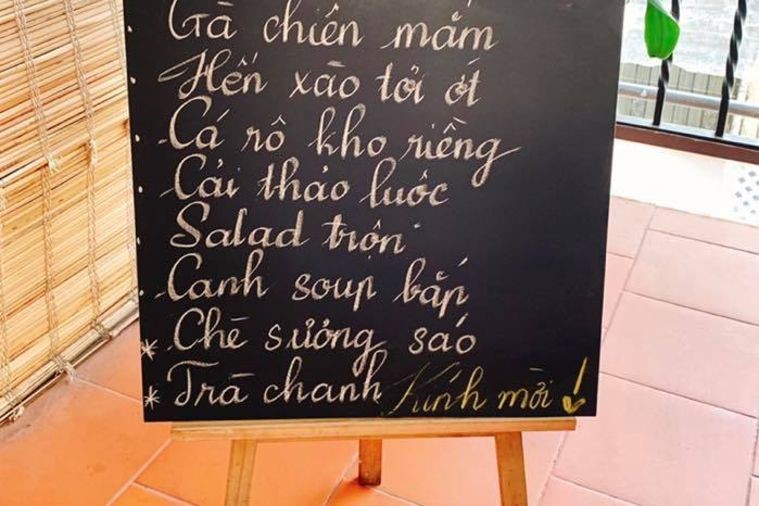 Gà chiên mắm
Hến xào tỏi ớt
Cá rô kho riềng
Cải thảo luộc
Salad trộn
Canh soup bắp
* Chè sưởng sáo
* Trà chanh Kính mời!